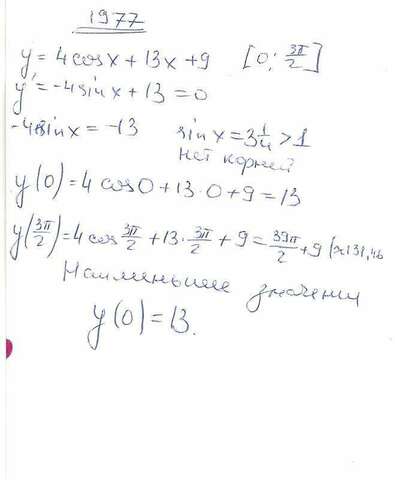 1977
y = 4cosx + 13x + 9 [0; 3π/2]
y' = -4sinx + 13 = 0
-4sinx = -13 sinx = 3 1/4 > 1
нет корней
y(0) = 4 cos0 + 13·0 + 9 = 13
y(3π/2) = 4 cos 3π/2 + 13· 3π/2 + 9 = 39π/2 + 9 (≈131,46
Наименьшие значении
y(0) = 13.